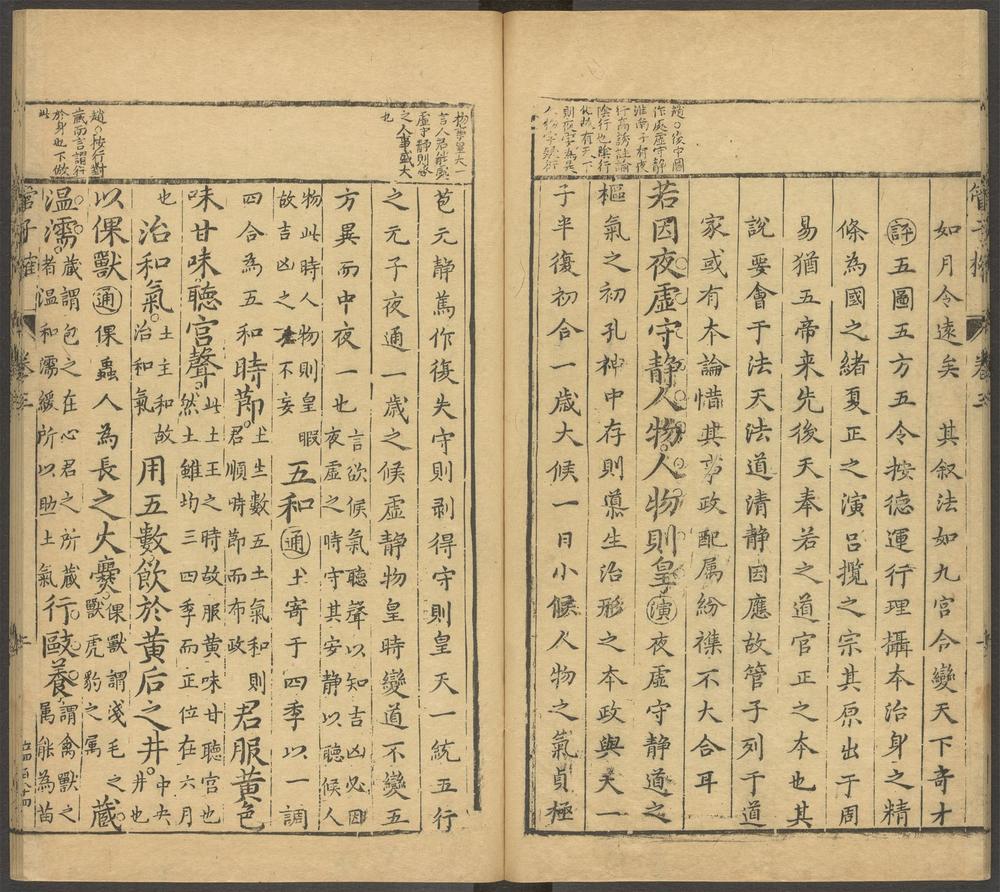 如月令遠矣　其叙法如九宮合變天下奇才
評五圖五方五令按德運行理攝本治身之精
條為國之緒夏正之演呂攬之宗其原出于周
易猶五帝来先後天奉若之道官正之本也其
說要會于法天法道清静因應故管子列于道
家或有本論惜其事政配属紛襍不大合耳
若因夜虛守静人物人物則皇演夜虛守静道之
樞氣之初孔神中存則慕生治形之本政與天一
子半復初合一歲大候一日小候人物之氣貞極
苞元静篤作復失守則剥得守則皇天一統五行
之元子夜通一歲之候虛静物皇時變道不變五
方異而中夜一也言欲候氣聽聲以知吉凶必因
夜虛之時守其安静以聽候人
物此時人物則皇暇
故吉凶之不妄五和通土寄于四季以一調
四合為五和時節土生數五土氣和則
君順時節而布政君服黄色
味甘味聽宮聲此土王之時故服黄味甘聽宮也
然土雖均三四季而正位在六月
也治和氣土主和故
治和氣用五數飲於黄后之井中央
井也
以倮獸通倮蟲人為長之火爨倮獸謂淺毛之
獸虎豹之屬藏
温濡藏謂包之在心君之所藏
者温和濡緩所以助土氣行歐養謂禽獸之
属能為苗
趙按行對
歲而言謂行
於身也下倣
此
管子 卷三